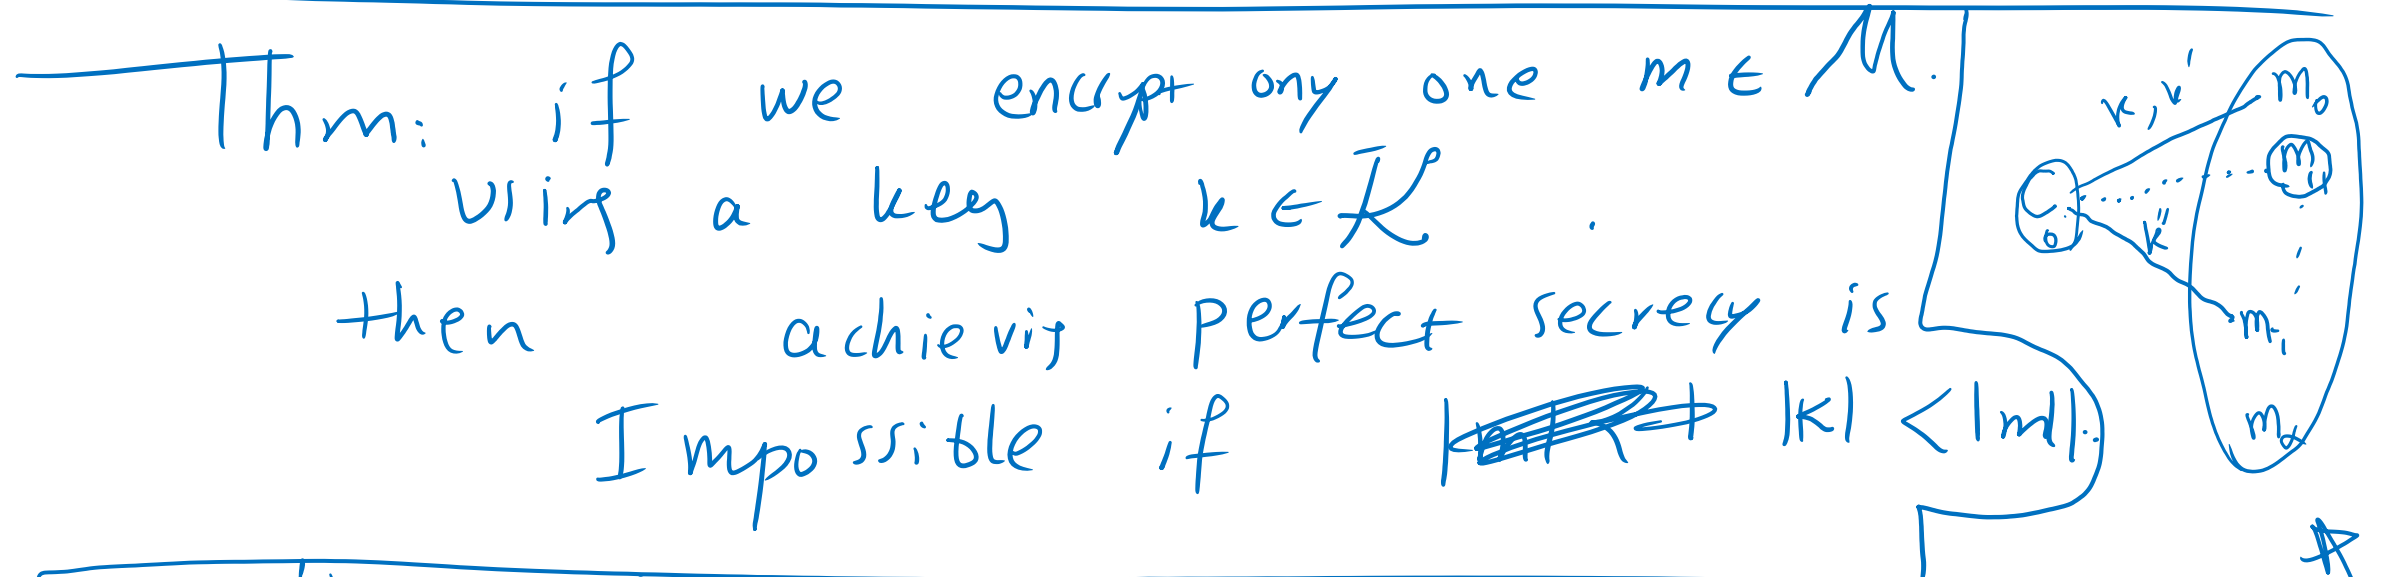 Thm: if we encrypt any one m ∈ M.
using a key k ∈ K .
then achieving perfect secrecy is
Impossible if |K| < |m|.
k, k'
m₀
m₁
C₀
k''
mᵢ